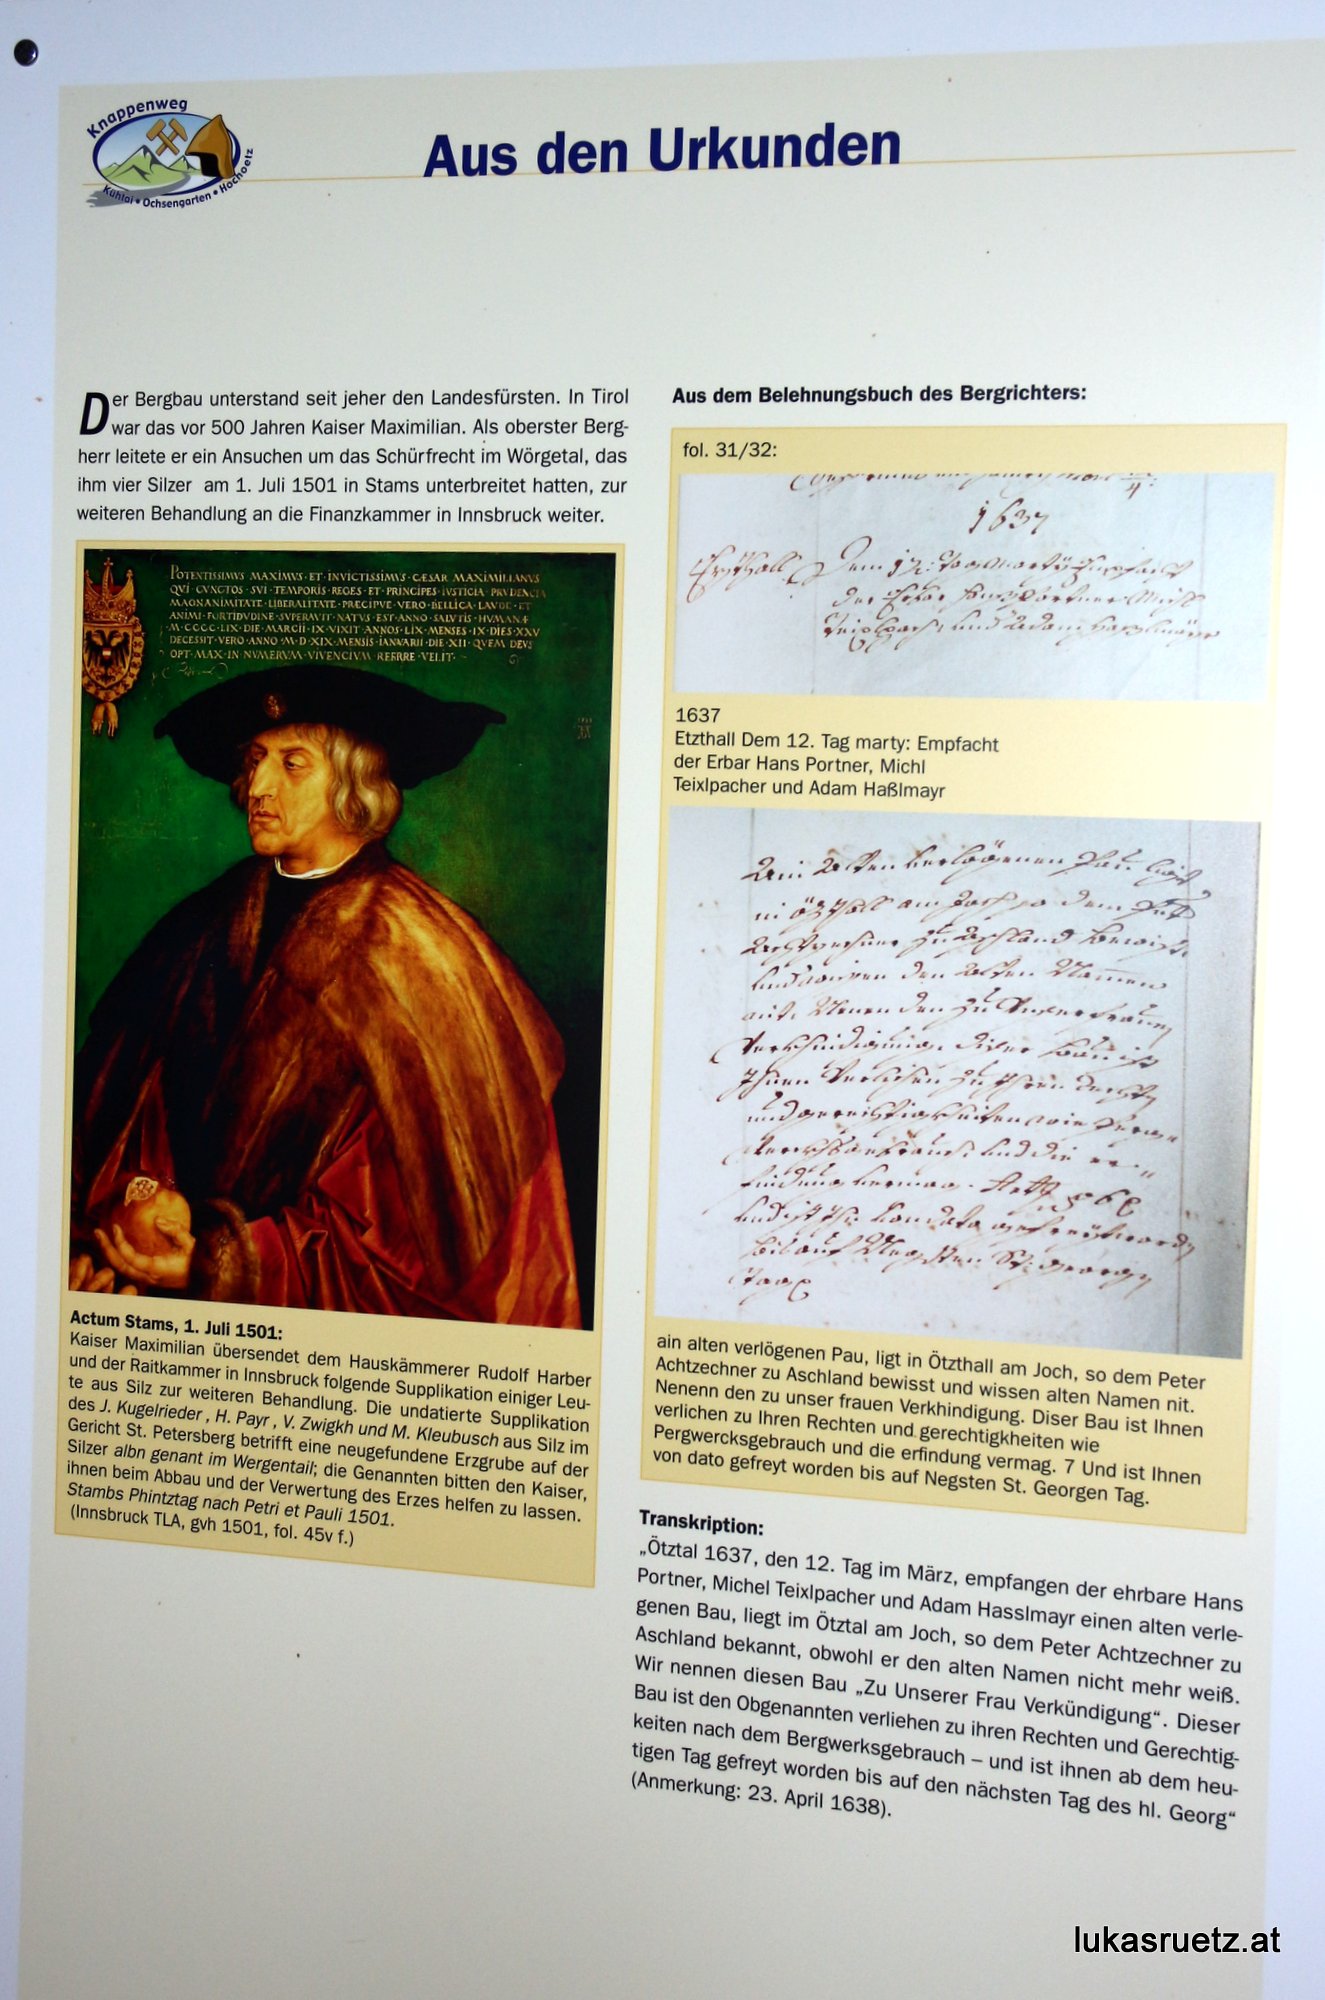 Knappenweg
Kühtai • Ochsengarten • Hochoetz
Aus den Urkunden
Der Bergbau unterstand seit jeher den Landesfürsten. In Tirol
war das vor 500 Jahren Kaiser Maximilian. Als oberster Berg-
herr leitete er ein Ansuchen um das Schürfrecht im Wörgetal, das
ihm vier Silzer am 1. Juli 1501 in Stams unterbreitet hatten, zur
weiteren Behandlung an die Finanzkammer in Innsbruck weiter.
POTENTISSIMVS · MAXIMVS · ET · INVICTISSIMVS · CÆSAR MAXIMILIANVS
QVI · CVNCTOS · SVI · TEMPORIS · REGES · ET · PRINCIPES · IVSTICIA · PRVDENCIA
MAGNANIMITATE · LIBERALITATE · PRECIPVE · VERO · BELLICA · LAVDE · ET
ANIMI · FORTITVDINE · SVPERAVIT · NATVS · EST · ANNO · SALVTIS · HVMANÆ
M · CCCC · LIX · DIE · MARCII · IX · VIXIT · ANNOS · LIX · MENSES · IX · DIES · XXV
DECESSIT · VERO · ANNO · M · D · XIX · MENSIS · IANVARII · DIE · XII · QVEM DEVS
OPT · MAX · IN · NVMERVM · VIVENCIVM · REFERRE · VELIT ·
Actum Stams, 1. Juli 1501:
Kaiser Maximilian übersendet dem Hauskämmerer Rudolf Harber
und der Raitkammer in Innsbruck folgende Supplikation einiger Leu-
te aus Silz zur weiteren Behandlung. Die undatierte Supplikation
des J. Kugelrieder , H. Payr , V. Zwigkh und M. Kleubusch aus Silz im
Gericht St. Petersberg betrifft eine neugefundene Erzgrube auf der
Silzer albn genant im Wergentail; die Genannten bitten den Kaiser,
ihnen beim Abbau und der Verwertung des Erzes helfen zu lassen.
Stambs Phintztag nach Petri et Pauli 1501.
(Innsbruck TLA, gvh 1501, fol. 45v f.)
Aus dem Belehnungsbuch des Bergrichters:
fol. 31/32:
1637
Etzthall Dem 12. Tag marty: Empfacht
der Erbar Hans Portner, Michl
Teixlpacher und Adam Haßlmayr
1637
Etzthall Dem 12. Tag marty: Empfacht
der Erbar Hans Portner, Michl
Teixlpacher und Adam Haßlmayr
ain alten verlögenen Pau, ligt in Ötzthall am Joch, so dem Peter
Achtzechner zu Aschland bewisst und wissen alten Namen nit.
Nenenn den zu unser frauen Verkhindigung. Diser Bau ist Ihnen
verlichen zu Ihren Rechten und gerechtigkheiten wie
Pergwercksgebrauch und die erfindung vermag. 7 Und ist Ihnen
von dato gefreyt worden bis auf Negsten St. Georgen Tag.
Transkription:
„Ötztal 1637, den 12. Tag im März, empfangen der ehrbare Hans
Portner, Michel Teixlpacher und Adam Hasslmayr einen alten verle-
genen Bau, liegt im Ötztal am Joch, so dem Peter Achtzechner zu
Aschland bekannt, obwohl er den alten Namen nicht mehr weiß.
Wir nennen diesen Bau „Zu Unserer Frau Verkündigung“. Dieser
Bau ist den Obgenannten verliehen zu ihren Rechten und Gerechtig-
keiten nach dem Bergwerksgebrauch – und ist ihnen ab dem heu-
tigen Tag gefreyt worden bis auf den nächsten Tag des hl. Georg“
(Anmerkung: 23. April 1638).
lukasruetz.at